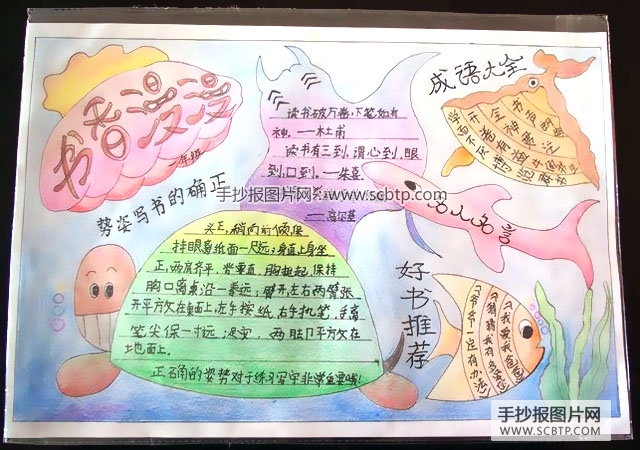 书香漫漫
一年级
读书破万卷,下笔如有
神。——杜甫
读书有三到,谓心到,眼
到,口到。——朱熹
——高尔基
手抄报图片网—www.scbtp.com—
成语大全
学而不厌 博
开卷有益
全神贯注
名人名言
势姿写书的确正
头正,稍向前倾,
持眼离纸面一尺远;身直上身坐
正,两肩齐平,
胸挺起,保持
胸口离桌沿一拳远;臂开左右两臂张
开平方放在桌面上,左手按纸,右手执笔,手离
笔尖保一寸远;足安,两
平方放在
地面上。
正确的姿势对于练习写字非常重要哦!
好书推荐
《我爸爸》
《猜猜我有多爱你》
《爷爷一定有办法》
手抄报图片网
WWW.SCBTP.COM